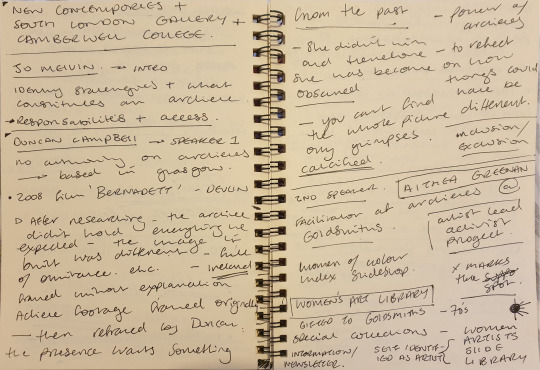 NEW CONTEMPORIES +
SOUTH LONDON GALLERY +
CAMBERWELL COLLEGE.
JO MELVIN → INTRO
Identity strategies + what
constitutes an archive.
• Responsabilities + access.
DUNCAN CAMPBELL → SPEAKER 1
no authority on archives
→ based in glasgow.
• 2008 film 'BERNADETT' - DEVLIN
After researching - the archive
didn't hold everything he
expected - the image he
built was different - full
of ommitance. etc. - Ireland
framed without explanation
Achieve footage framed originally
→ then reframed by Duncan.
the presence wants something
from the past
- She didn't win
and therefore
She was become
obscured
- you can't find
the whole picture
only glimpses.
calcified.
- power of
archives
- to reflect
on how
things could
have be
different.
inclusion/
exclusion
2ND SPEAKER. ALTHEA GREENAN
facilitator of archives @
Goldsmiths
artist lead
activist
project
women of colour
index slideshop.
X MARKS
the SPOT.
WOMEN'S ART LIBRARY
GIFTED TO GOLDSMITHS - 70's
special collections -
WOMEN
ARTISTS
SLIDE
LIBRARY
INFORMATION/
NEWSLETTER.
SELF IDENTIF-
IED AS ARTIST